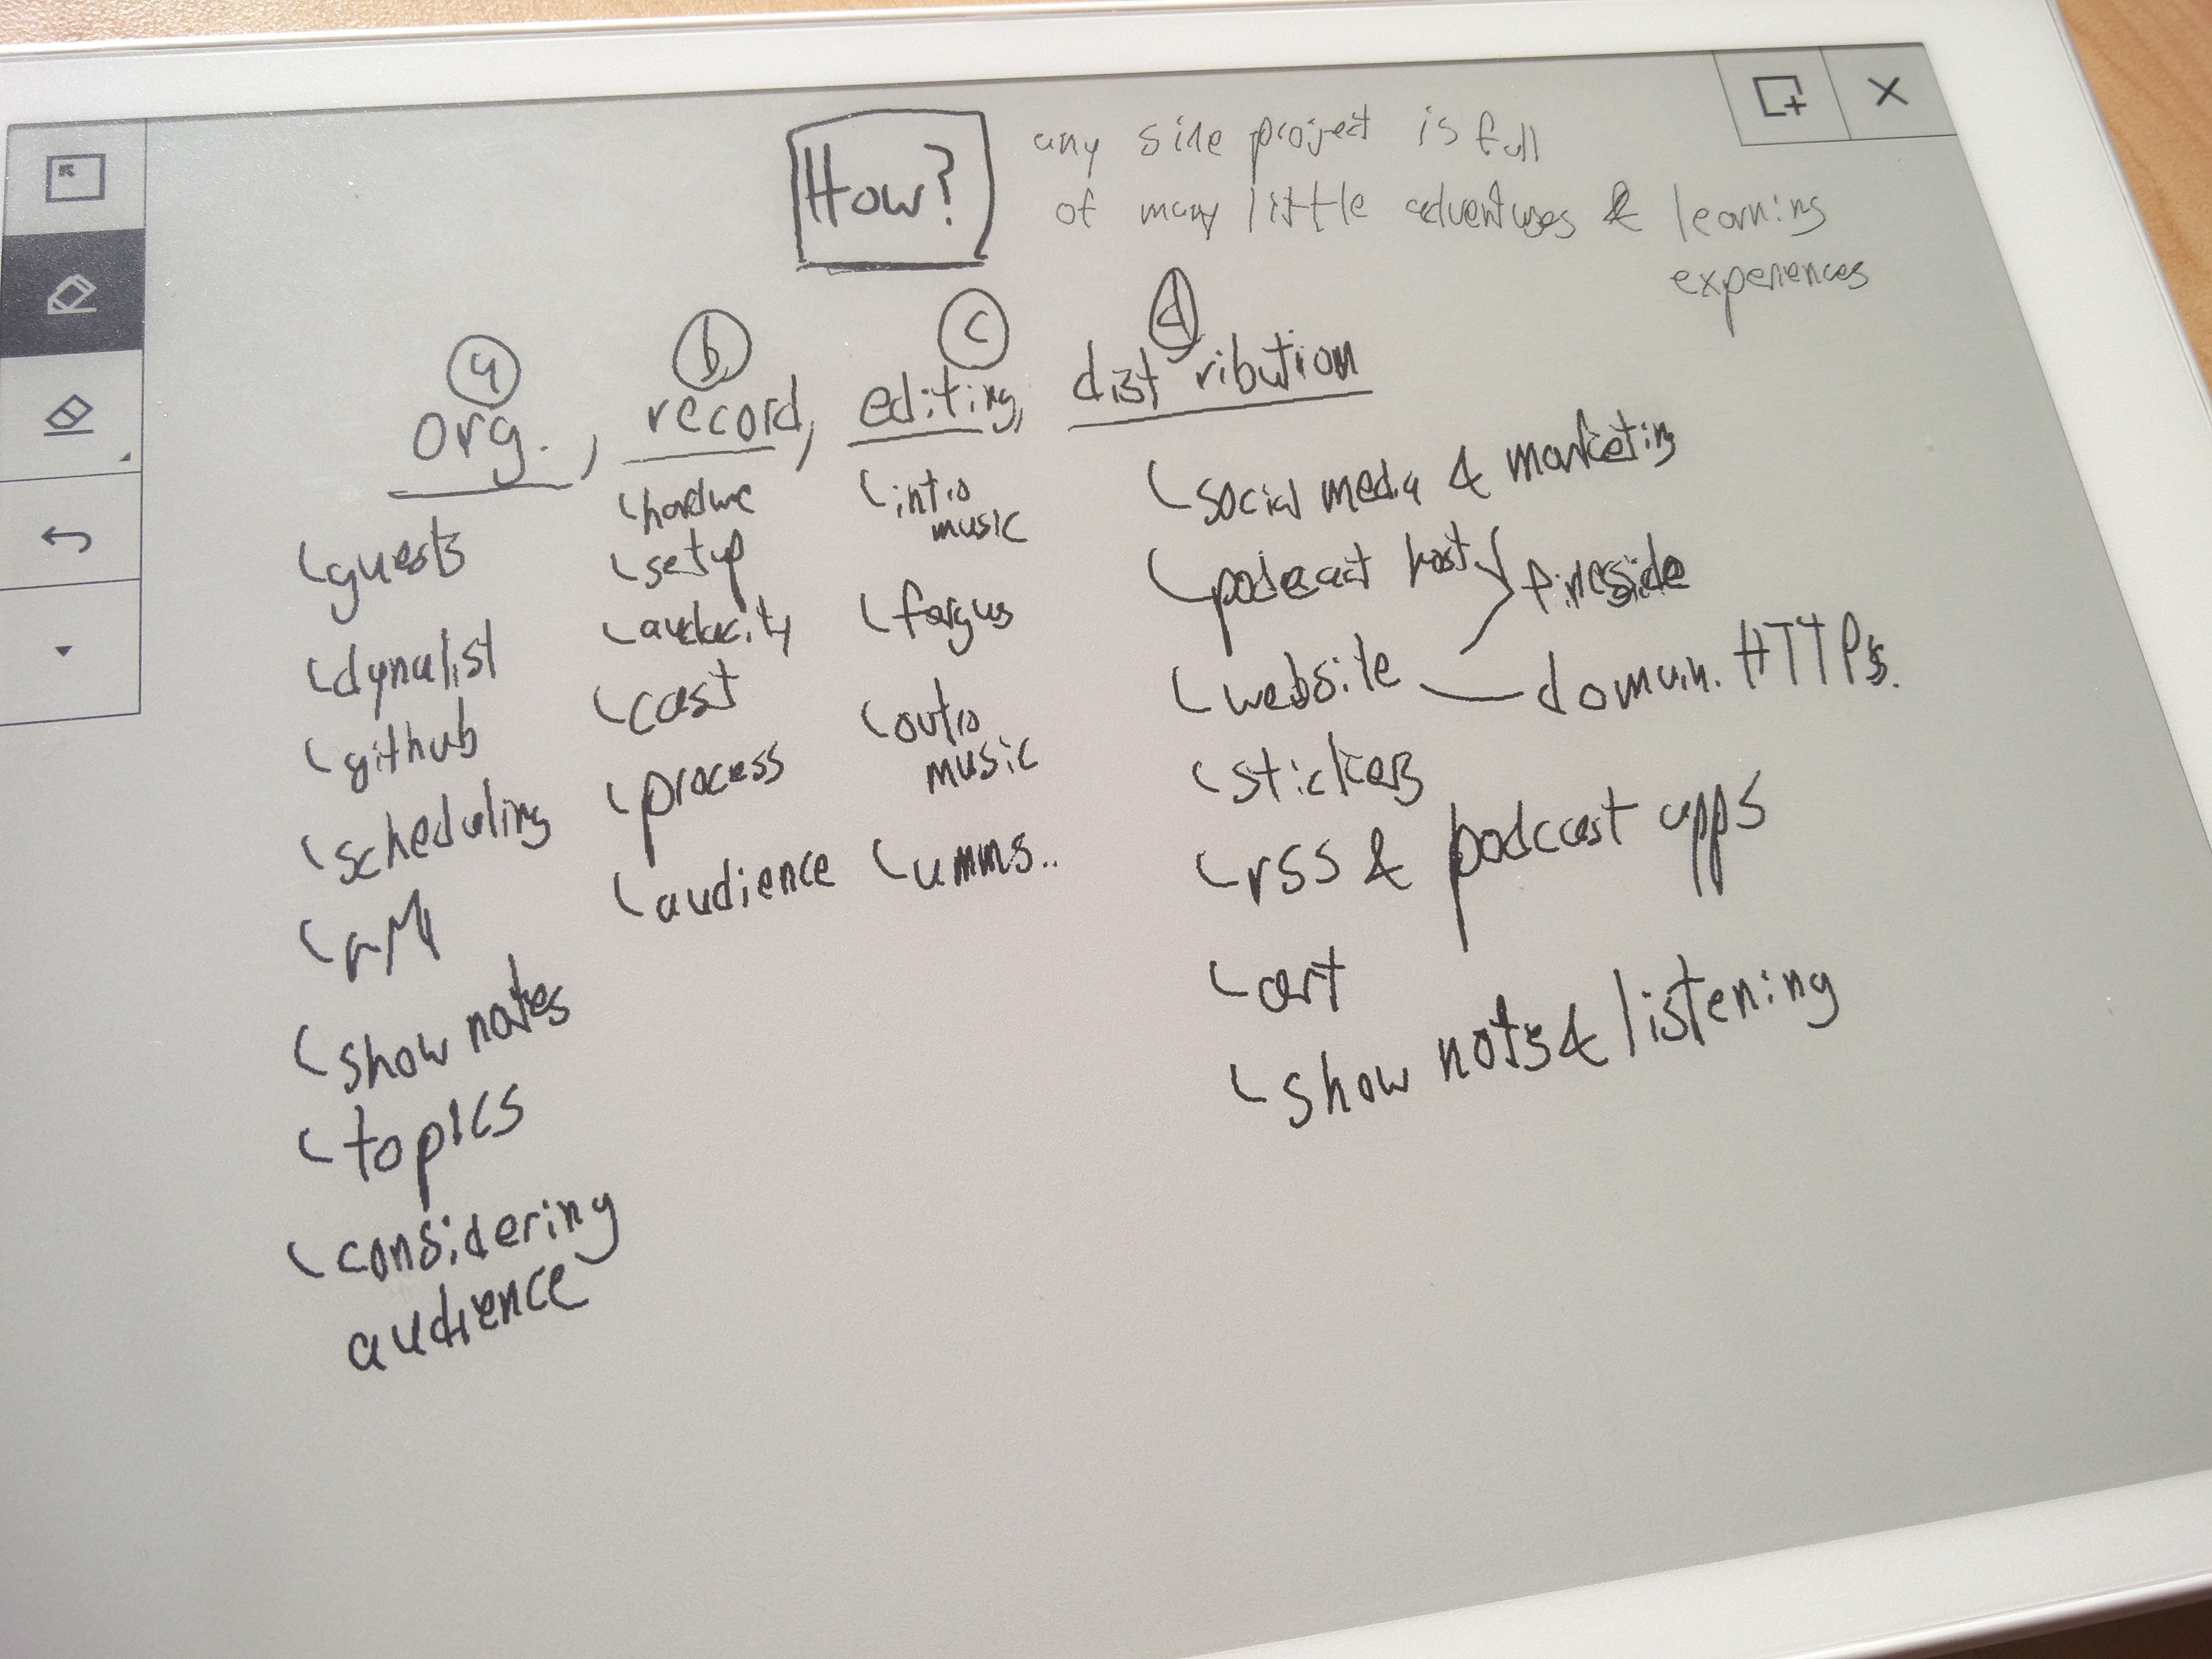 How?
any side project is full
of many little adventures & learning
experiences
a b c d
org., record, editing, distribution
guests
dynalist
github
scheduling
rM
show notes
topics
considering
audience
hardware
setup
audacity
cast
process
audience
intro
music
fergus
outro
music
umms..
social media & marketing
podcast host } fireside
website — domain. HTTPs.
stickers
rss & podcast apps
art
show nots & listening